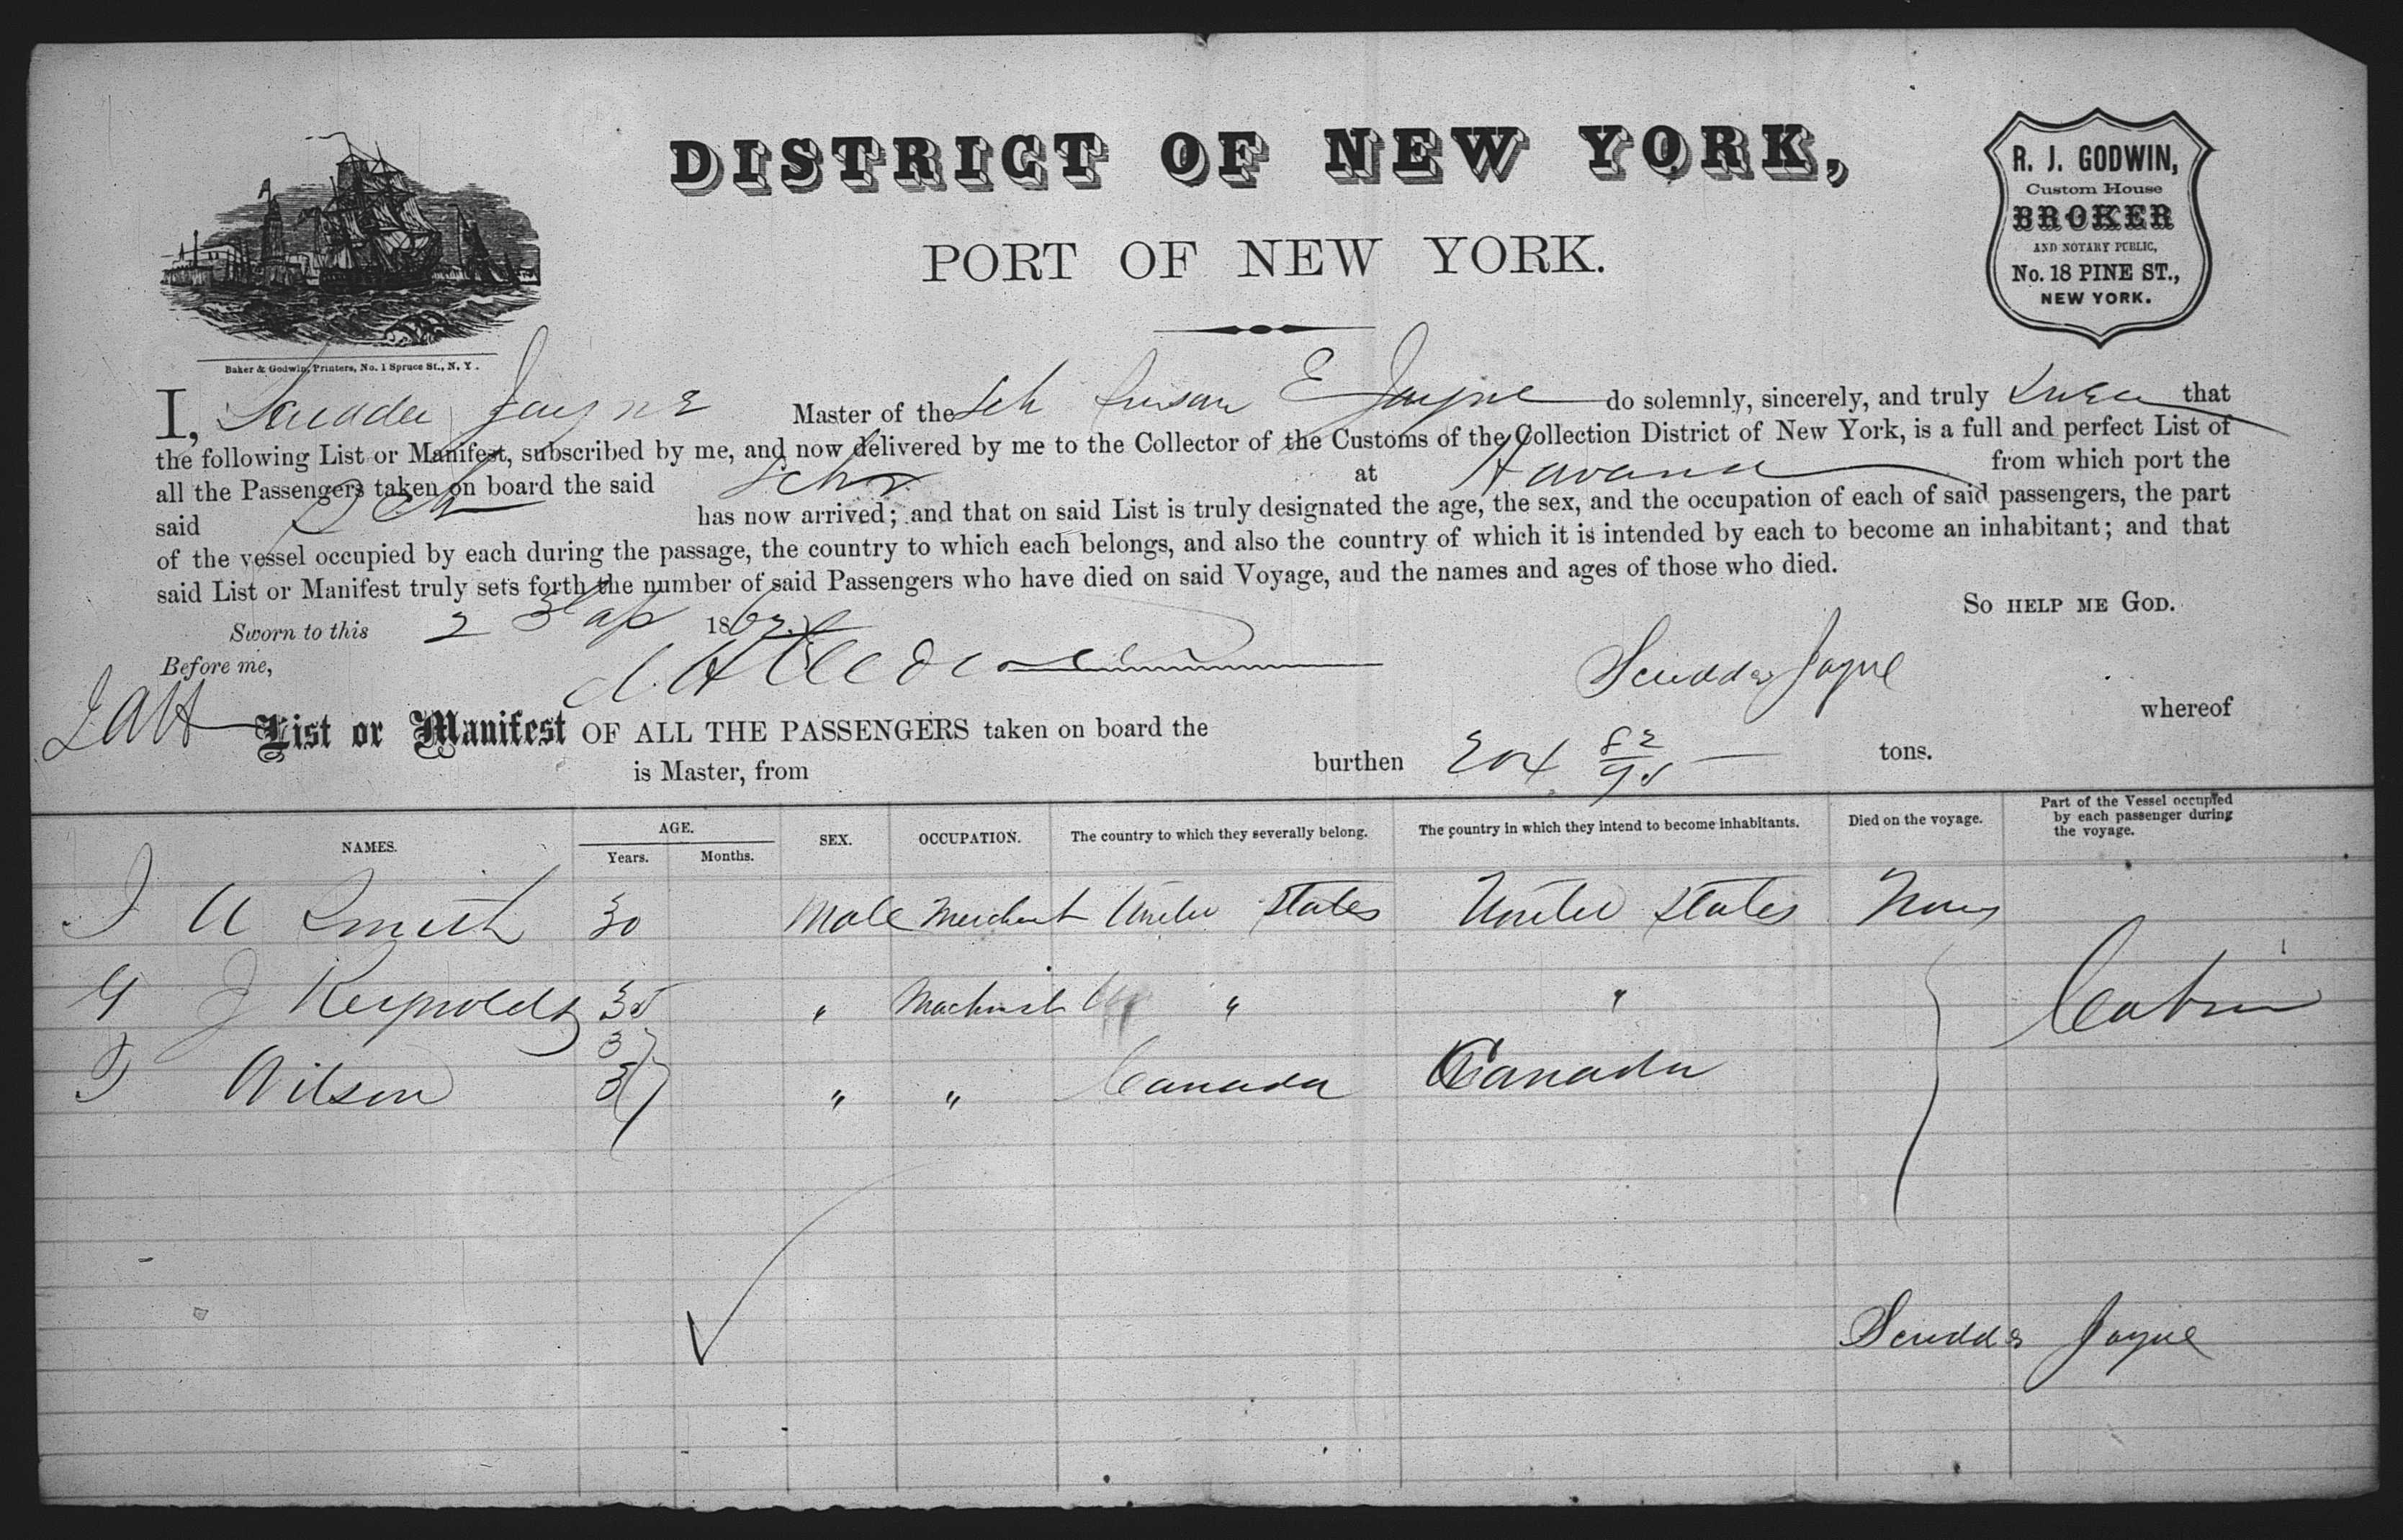 DISTRICT OF NEW YORK,
PORT OF NEW YORK.
R. J. GODWIN,
Custom House
BROKER
AND NOTARY PUBLIC,
No. 18 PINE ST.,
NEW YORK.
Baker & Godwin, Printers, No. 1 Spruce St., N. Y.
I, Scudder Jayne Master of the Sch Susan E Jayne do solemnly, sincerely, and truly swear that
the following List or Manifest, subscribed by me, and now delivered by me to the Collector of the Customs of the Collection District of New York, is a full and perfect List of
all the Passengers taken on board the said Schr at Havana from which port the
said Sch has now arrived; and that on said List is truly designated the age, the sex, and the occupation of each of said passengers, the part
of the vessel occupied by each during the passage, the country to which each belongs, and also the country of which it is intended by each to become an inhabitant; and that
said List or Manifest truly sets forth the number of said Passengers who have died on said Voyage, and the names and ages of those who died.
So HELP ME GOD.
Sworn to this 2 186
Before me,
Scudder Jayne
List or Manifest OF ALL THE PASSENGERS taken on board the whereof
is Master, from burthen 204 82/95 tons.
NAMES. AGE. Years. Months. SEX. OCCUPATION. The country to which they severally belong. The country in which they intend to become inhabitants. Died on the voyage. Part of the Vessel occupied by each passenger during the voyage.
J A Smith 30 Male Merchant United States United States None
G J Reynolds 35 " Machinist " " Cabin
T Wilson 37 " " Canada Canada
Scudder Jayne